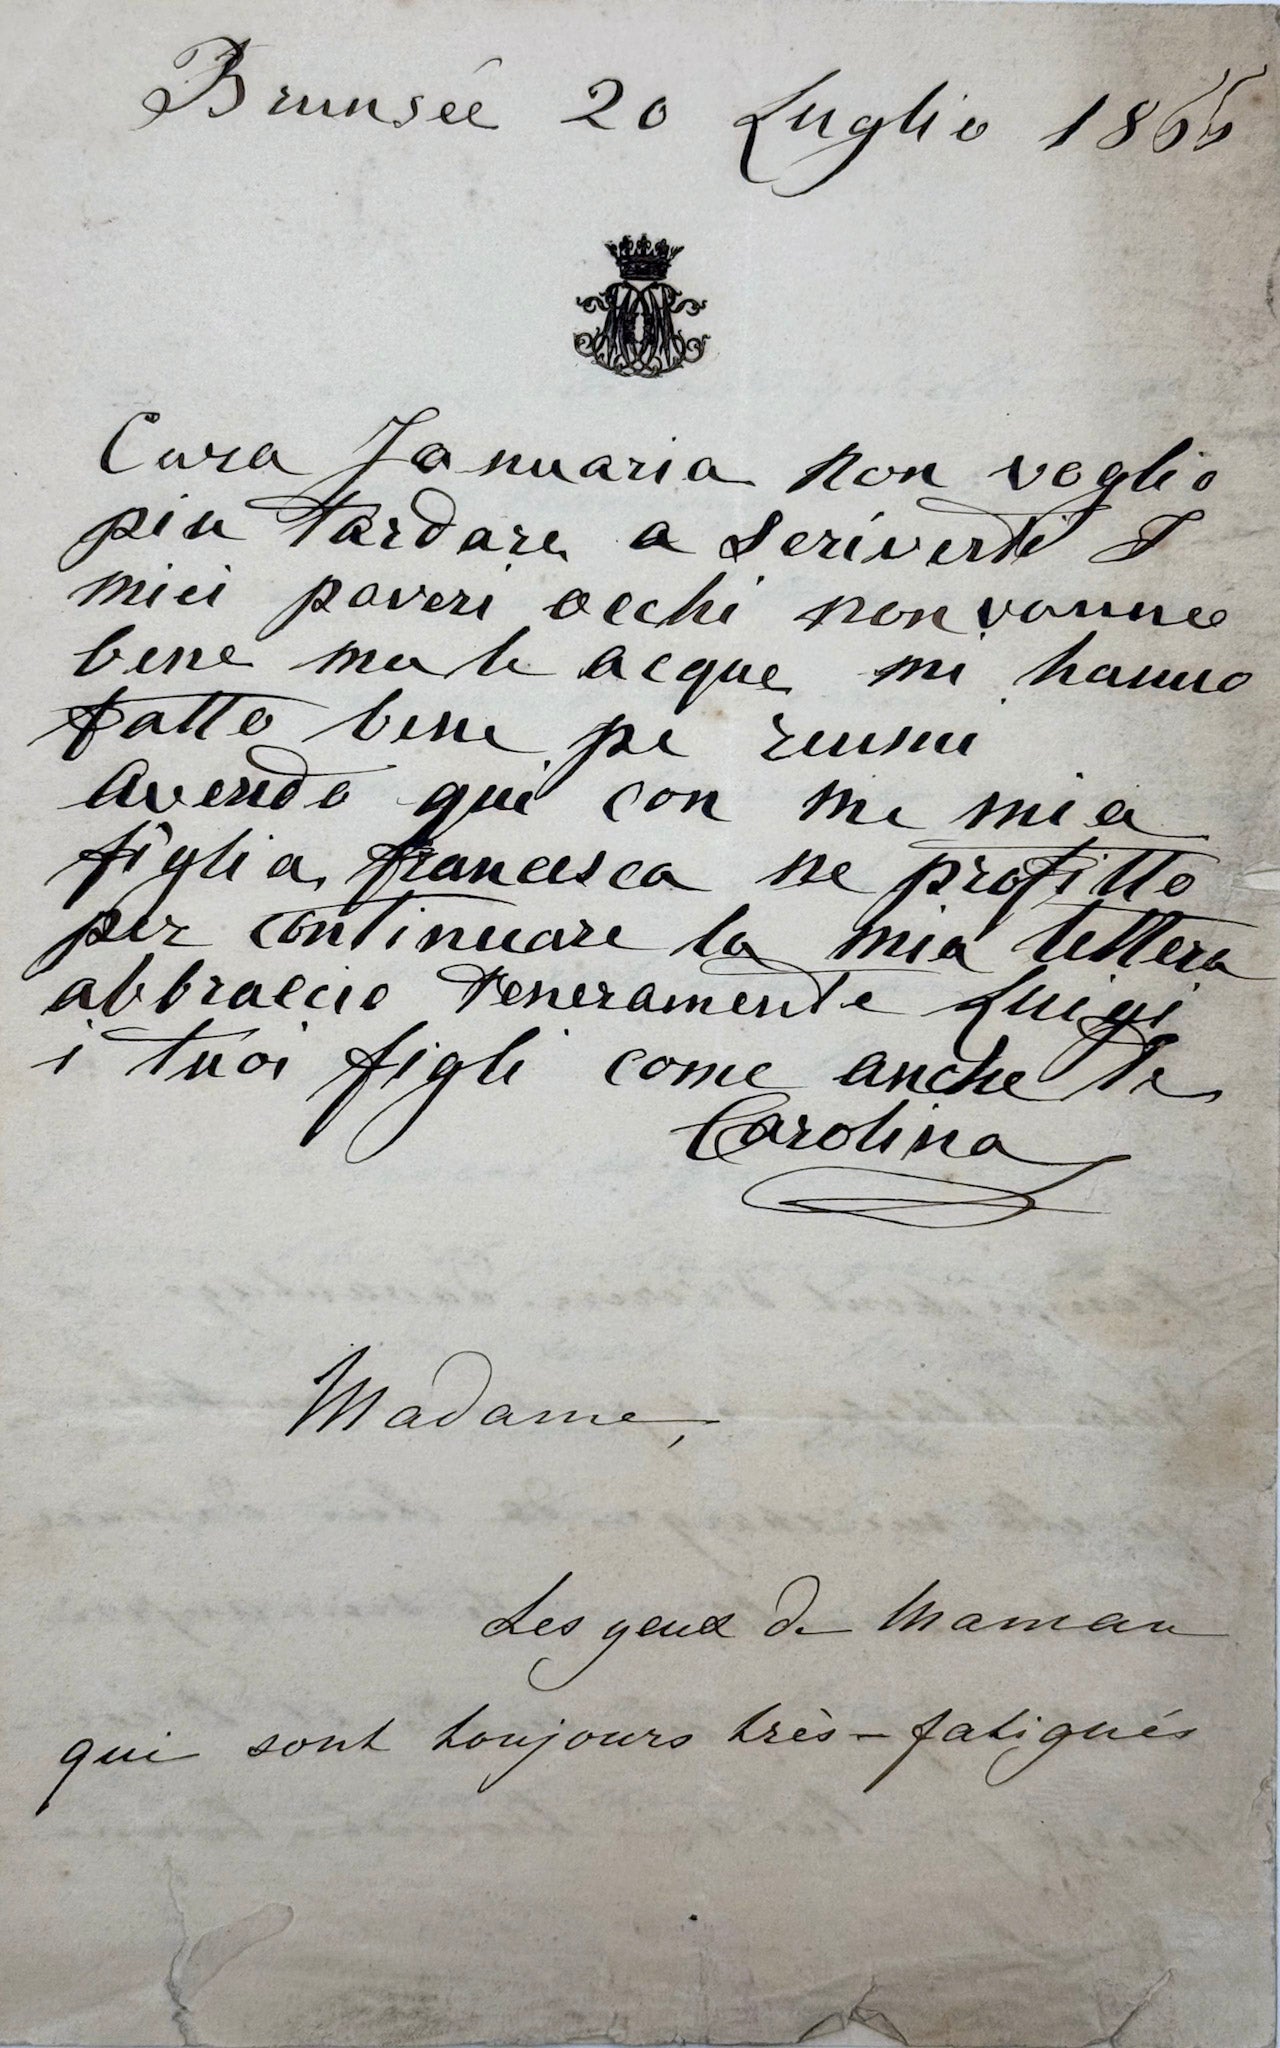 Brunsée 20 Luglio 186
Cara Januaria non voglio
piu tardare a scriverti I
miei poveri occhi non vanno
bene ma le acque mi hanno
fatto bene pe reumi
avendo qui con me mia
figlia francesca ne profitto
per continuare la mia lettera
abbraccio teneramente Luigi
i tuoi figli come anche te
Carolina
Madame,
Les yeux de Maman
qui sont toujours très-fatigués